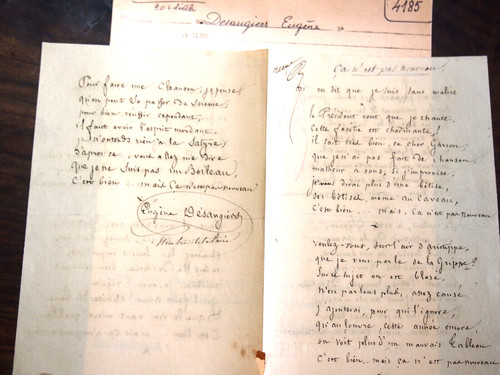 20e siècle
Desaugiers Eugène
4185
Pour faire une Chanson, je pense
qu'on peut se passer de Science;
pour bien réussir cependant,
il faut avoir l'esprit mordant.
je n'entends rien à la Satyre;
D'après ce, vous allez me dire
que je ne suis pas un Boileau,
C'est bien mais Ca n'est pas nouveau
Eugène Désaugiers
Membre titulaire
Ça n'est pas nouveau!
on dit que je suis sans malice
le Président veut que je chante,
Cette facétie est charmante!
il sait très bien, ce cher Garçon
que je n'ai pas fait de chanson
malheur à vous, si j'improvise,
je vous dirai plus d'une bêtise,
des bêtises, même au Caveau,
C'est bien mais, Ca n'est pas nouveau
voulez-vous, sur l'air d'aristippe,
que je vous parle de la Grippe?
Sur ce sujet on est blasé,
N'en parlons plus, assez causé.
J'ajouterai, pour qui l'ignore,
qu'au louvre, cette année encore,
on voit plus d'un mauvais tableau
C'est bien, mais ça n'est pas nouveau